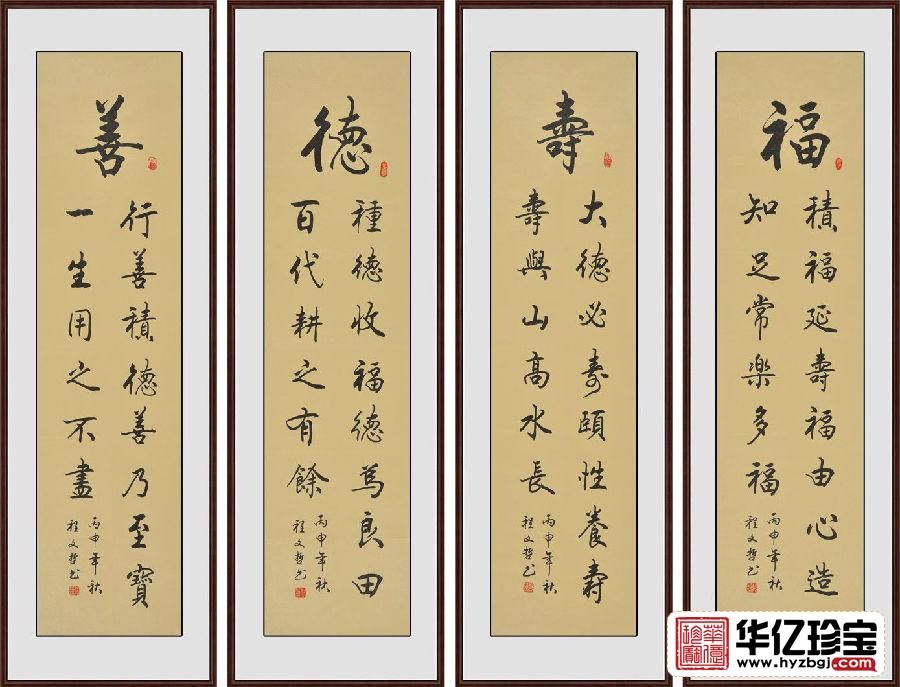 福
積福延壽福由心造
知足常樂多福
丙申年秋
程文哲书
壽
大德必寿頤性養壽
壽與山高水長
丙申年秋
程文哲书
德
種德收福德爲良田
百代耕之有餘
丙申年秋
程文哲书
善
行善積德善乃至寶
一生用之不盡
丙申年秋
程文哲书
华亿珍宝
www.hyzbgj.com